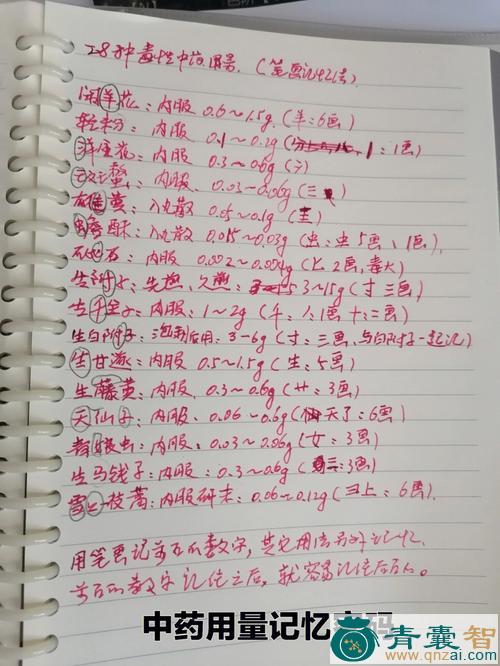 28种毒性中药用量.(笔画记忆法)
闹羊花:内服 0.6~1.5g.(羊:6画)
轻粉: 内服 0.1~0.2g( 1:1画)
洋金花:内服 0.3~0.6g(氵)
斑蝥:内服. 0.03~0.06g(三)
雄黄:入丸散 0.05~0.1g(圭)
蟾酥:入丸散 0.015~0.03g(虫:虫5画、1画).
砒石:内服 0.002~0.004g(匕2画,毒大)
生附子:先煎,久煎 3~15g(寸三画)
生千金子:内服:1~2g(千:八1画十:二画)
生白附子:泡制后用:3-6g(寸:三画,与白附子一起记)
生甘遂:内服 0.5~1.5g(生:5画)
生藤黄:内服,0.3~0.6g(廿:3画)
天仙子:内服. 0.06~0.6g(天了:6画)
青娘虫:内服:0.03~0.06g(女:3画)
生马钱子:内服:0.3~0.6g(三:3画)
雪上一枝蒿:内服研末:0.06~0.12g(彐上:6画).
用笔画记前面的数字,其它用法另外记忆.
前面的数字记住之后,就容易记住后面的。
中药用量记忆
青囊智
www.qnzai.com